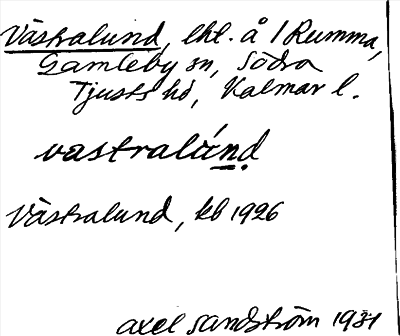 Västralund, lhl. å 1 Rumma,
Gamleby sn, Södra
Tjusts hd, Kalmar l.
vastralúnd
Västralund, kb 1926
Axel Sandström 1931